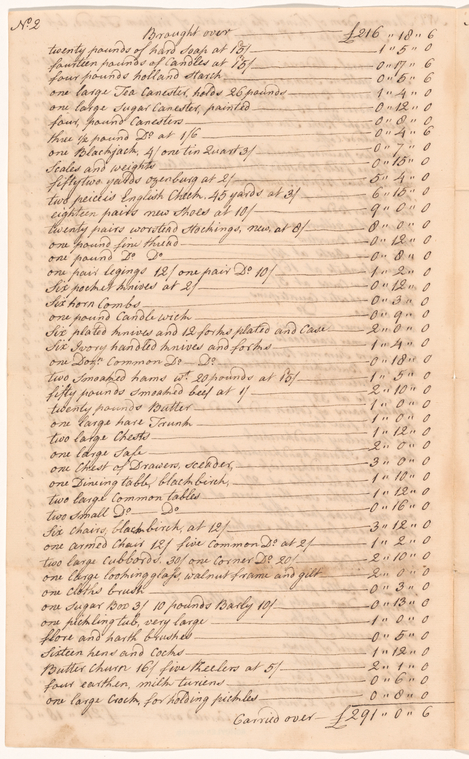 No. 2
Brought over £216 " 18 " 6
twenty pounds of hard Soap at 1/3/ 1 " 5 " 0
fourteen pounds of Candles at 1/3/ 0 " 17 " 6
four pounds holland Starch 0 " 5 " 6
one large Tea Canester, holds 26 pounds 1 " 4 " 0
one large Sugar Canester, painted 0 " 12 " 0
four, pound Canesters 0 " 8 " 0
three ½ pound Do at 1/6 0 " 4 " 6
one Blackjack, 4/ one tin Quart 3/ 0 " 7 " 0
Scales and weights 0 " 15 " 0
fiftytwo yards ozenburg at 2/ 5 " 4 " 0
two peices English Check, 45 yards at 3/ 6 " 15 " 0
eighteen pairs new Shoes at 10/ 9 " 0 " 0
twenty pairs worstead Stockings, new, at 8/ 8 " 0 " 0
one pound fine thread 0 " 12 " 0
one pound Do Do 0 " 8 " 0
one pair legings 12/ one pair Do 10/ 1 " 2 " 0
Six pocket knives at 2/ 0 " 12 " 0
Six horn Combs 0 " 3 " 0
one pound Candlewick 0 " 9 " 0
Six plated knives and 12 forks plated and Case 2 " 0 " 0
Six Ivory handled knives and forks 1 " 4 " 0
one Dozn Common Do Do 0 " 18 " 0
two Smoaked hams wt. 20 pounds at 1/3/ 1 " 5 " 0
fifty pounds Smoaked beef at 1/ 2 " 10 " 0
twenty pounds Butter 1 " 0 " 0
one large hare Trunk 1 " 0 " 0
two large Chests 1 " 12 " 0
one large Safe 2 " 0 " 0
one Chest of Drawers, 3 " 0 " 0
one Dineing table, blackbirch, 1 " 10 " 0
two large Common tables 1 " 12 " 0
two Small Do Do 0 " 16 " 0
Six Chairs, blackbirch, at 12/ 3 " 12 " 0
one armed Chair 12/ five Common Do at 2/ 1 " 2 " 0
two large Cubbords, 30/ one Corner Do 20/ 2 " 10 " 0
one large lookinglass, walnut frame and gilt 2 " 0 " 0
one Cloths brush 0 " 3 " 0
one Sugar Box 3/ 10 pounds Barly 10/ 0 " 13 " 0
one pickling tub, very large 1 " 0 " 0
flore and harth brushes 0 " 5 " 0
Sixteen hens and Cocks 1 " 12 " 0
Butter Churn 16/ five Keelers at 5/ 2 " 1 " 0
four earthen, milk turiens 0 " 6 " 0
one large Crock, for holding pickles 0 " 8 " 0
Carried over £291 " 0 " 6